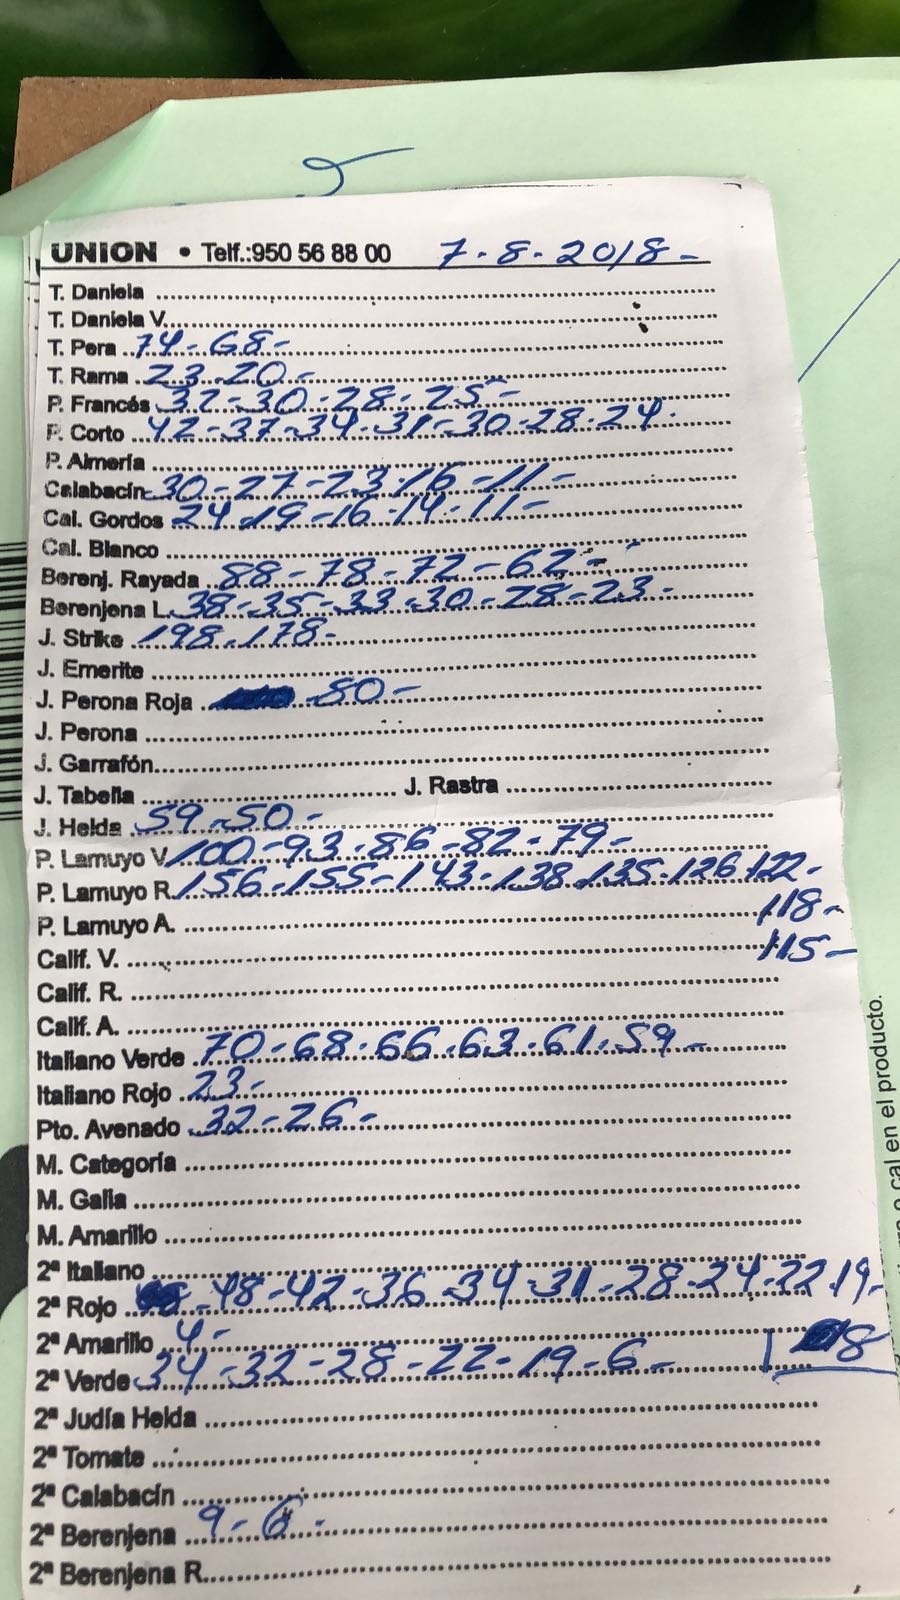 UNION • Telf.:950 56 88 00 7-8-2018-
T. Daniela
T. Daniela V.
T. Pera 74-68-
T. Rama 23-20-
P. Francés 32-30-28-25-
P. Corto 42-37-34-31-30-28-24-
P. Almería
Calabacín 30-27-23-16-11-
Cal. Gordos 24-19-16-14-11-
Cal. Blanco
Berenj. Rayada 88-78-72-62-
Berenjena L. 38-35-33-30-28-23-
J. Strike 198-178-
J. Emerite
J. Perona Roja 80-
J. Perona
J. Garrafón
J. Tabella J. Rastra
J. Helda 59-50-
P. Lamuyo V. 100-93-86-82-79-
P. Lamuyo R. 156-155-143-138-135-126-122-
118-
P. Lamuyo A.
115-
Calif. V.
Calif. R.
Calif. A.
Italiano Verde 70-68-66-63-61-59-
Italiano Rojo 23-
Pto. Avenado 32-26-
M. Categoría
M. Galia
M. Amarillo
2ª Italiano
2ª Rojo 48-42-36-34-31-28-24-22-19-
18
2ª Amarillo 4-
2ª Verde 34-32-28-22-19-6-
2ª Judía Helda
2ª Tomate
2ª Calabacín
2ª Berenjena 9-6-
2ª Berenjena R.
cal en el producto.